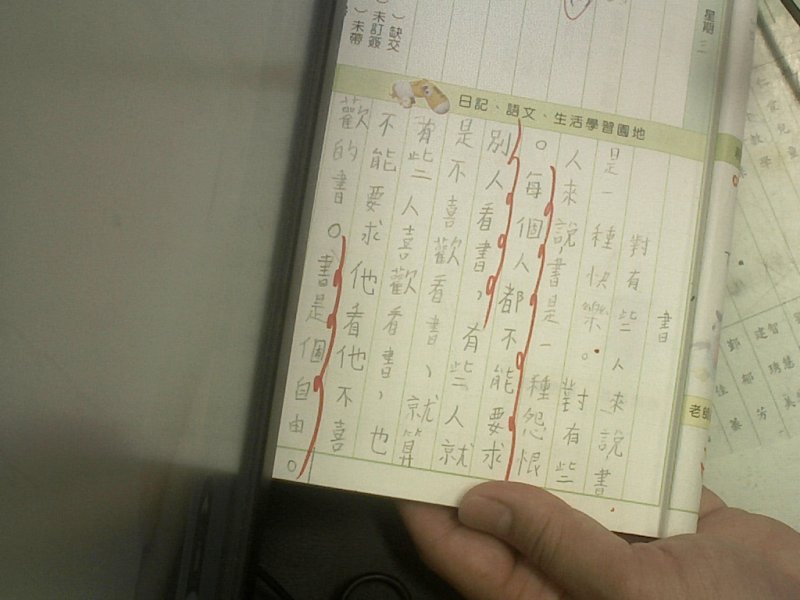 星期三
）缺交
）未訂簽
）未帶
日記、語文、生活學習園地
書
對有些人來說書
是一種快樂。對有些
人來說書是一種怨恨
。每個人都不能要求
別人看書，有些人就
是不喜歡看書、就算
有些人喜歡看書，也
不能要求他看他不喜
歡的書。書是個自由
。
老師